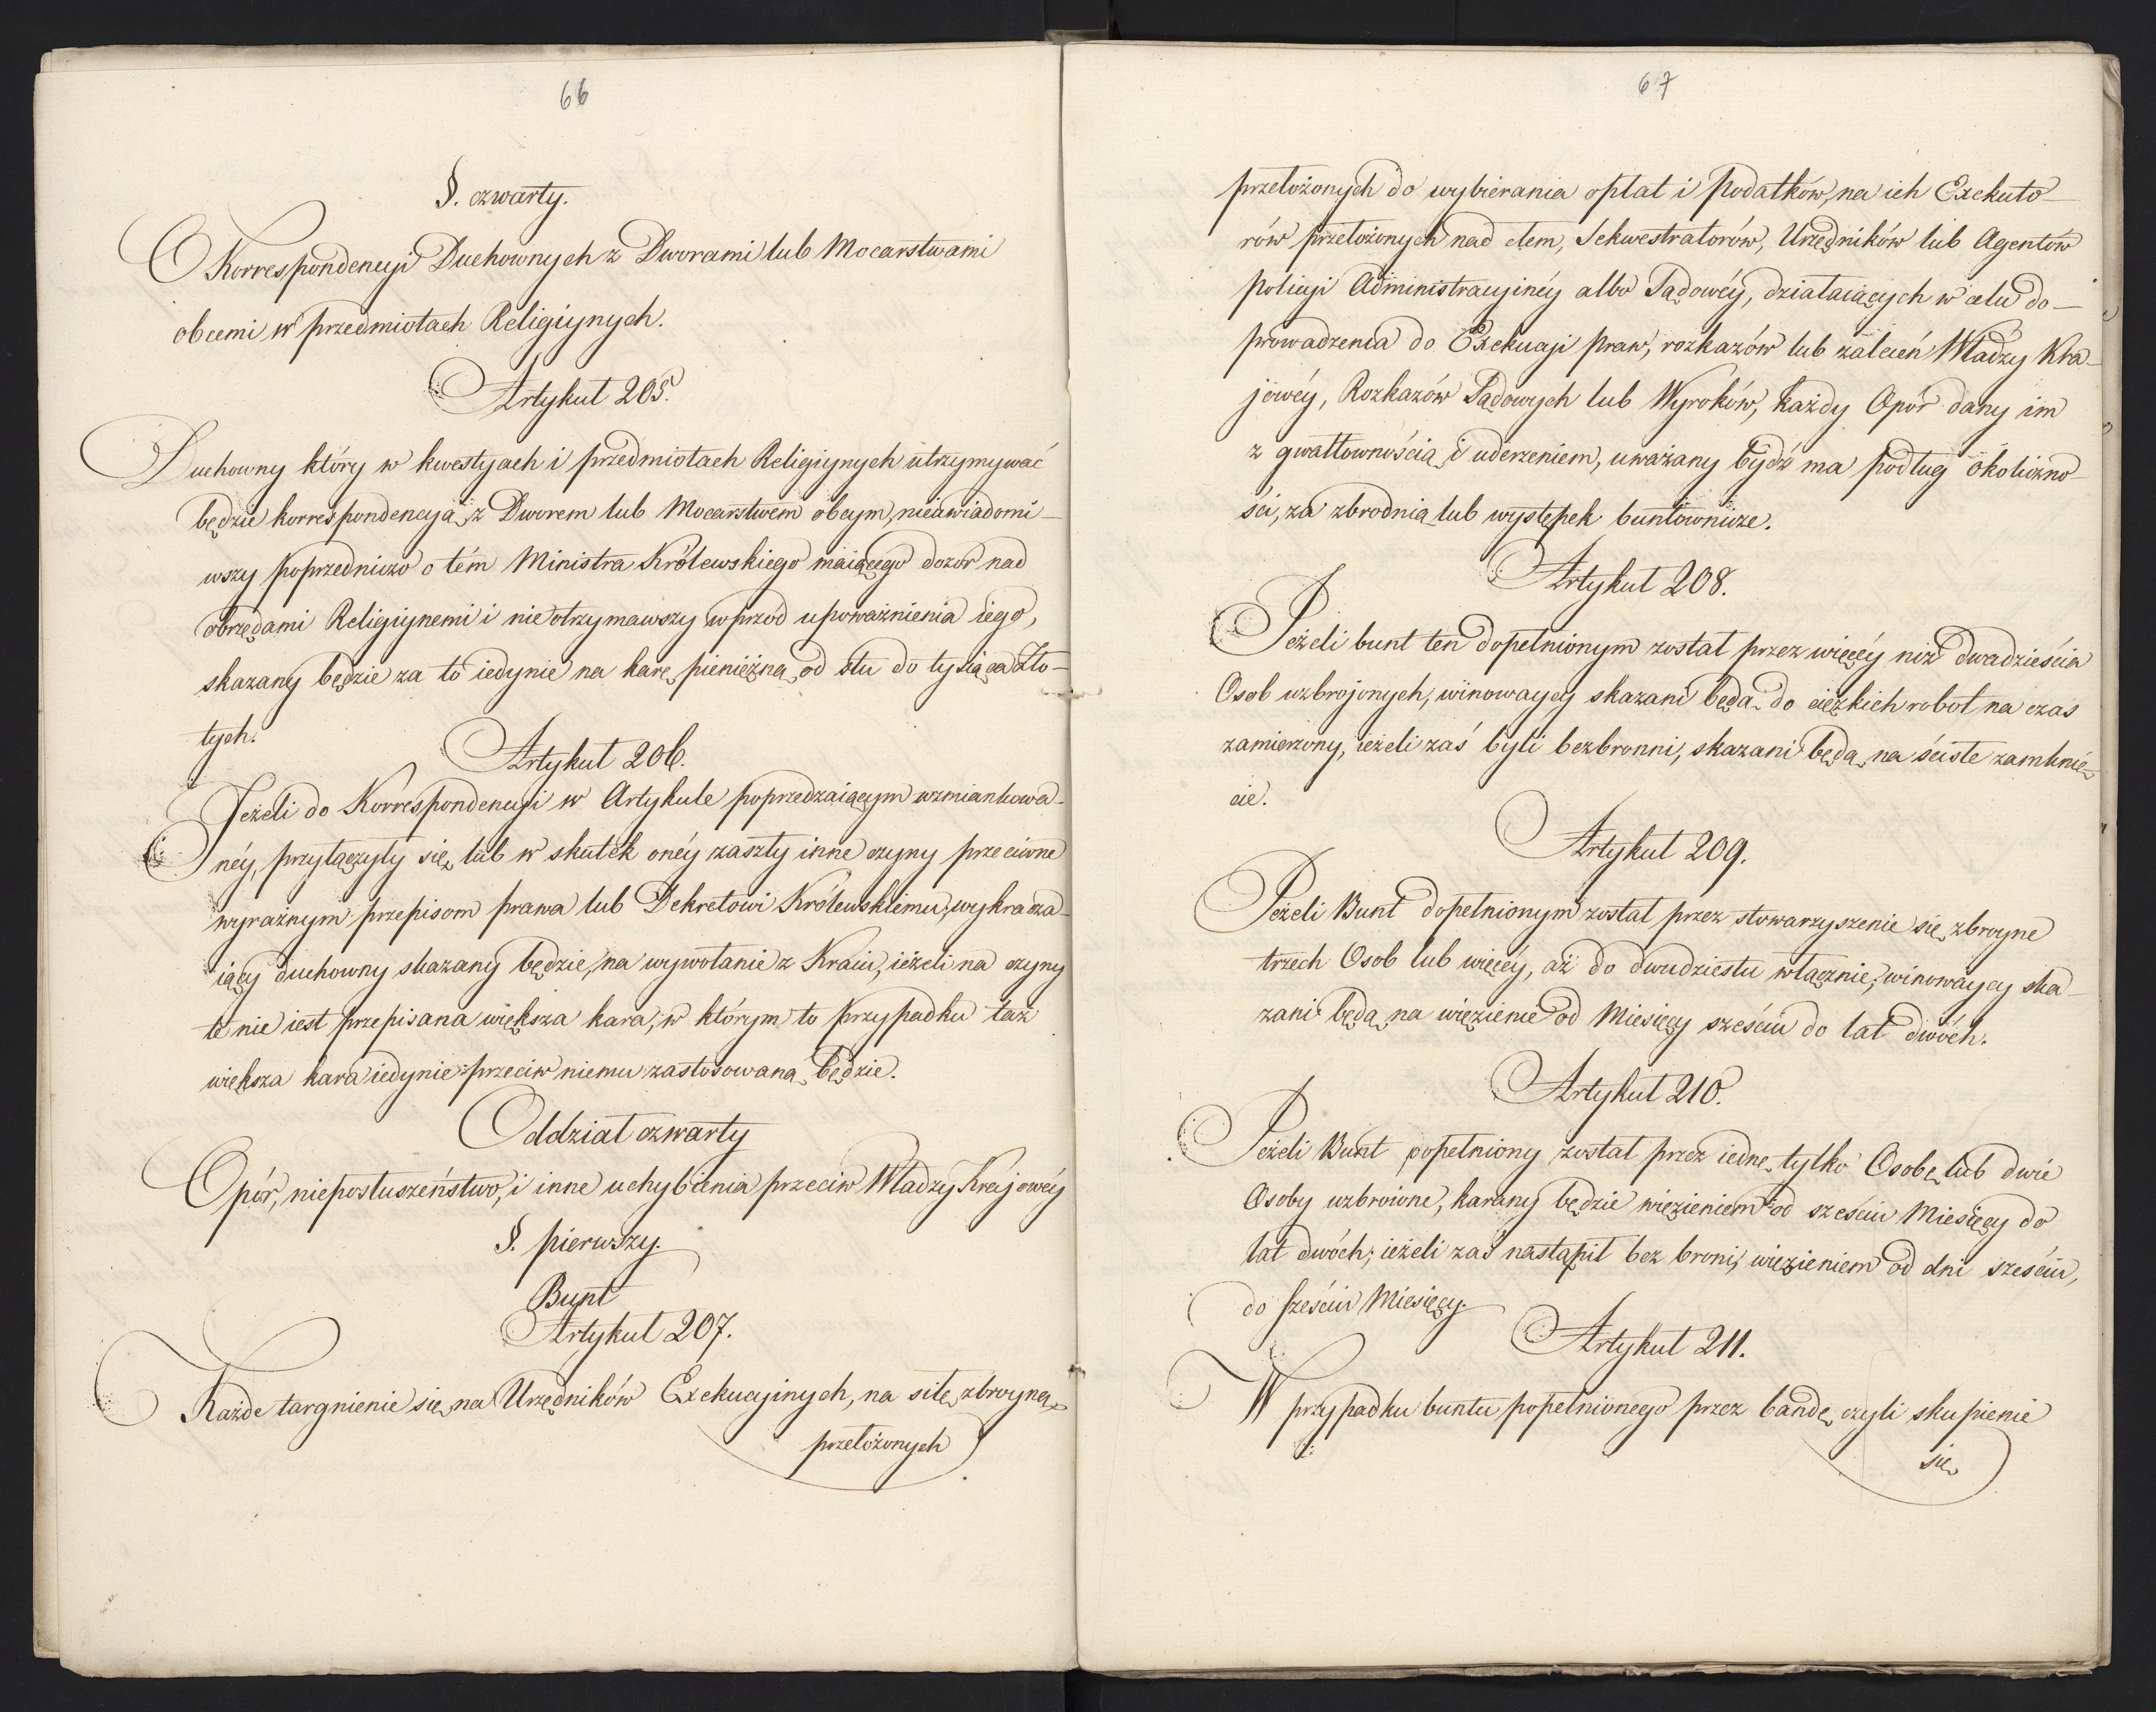 66
§. czwarty.
O Korrespondencyi Duchownych z Dworami lub Mocarstwami
obcemi w przedmiotach Religiynych.
Artykuł 205.
Duchowny który w kwestyach i przedmiotach Religiynych utrzymywać
będzie korrespondencyą z Dworem lub Mocarstwem obcym, nieuwiadomi-
wszy poprzedniczo o tém Ministra Królewskiego maiącego dozór nad
obrzędami Religiynemi i nie otrzymawszy wprzód upoważnienia iego,
skazany będzie za to iedynie na karę pieniężną od stu do tysiąca Zło-
tych.
Artykuł 206.
Jeżeli do Korrespondencyi w Artykule poprzedzaiącym wzmiankowa-
néy, przyłączyły się lub w skutek onéy zaszły inne czyny przeciwne
wyraźnym przepisom prawa lub Dekretowi Królewskiemu, wykracza-
iący duchowny skazany będzie, na wywołanie z Kraiu, ieżeli na czyny
te nie iest przepisana większa kara, w którym to przypadku taż
większa kara iedynie przeciw niemu zastosowaną będzie.
Oddział czwarty
Opór, nieposłuszeństwo, i inne uchybienia przeciw Władzy Krajowéy
§. pierwszy.
Bunt
Artykuł 207.
Każde targnienie się na Urzędników Exekucyinych, na siłę zbroyną,
przełożonych
67
przełożonych do wybierania opłat i podatków, na ich Exekuto-
rów przełożonych nad cłem, Sekwestratorów, Urzędników lub Agentów
policyi Administracyinéy albo Sądowéy, działaiących w celu do-
prowadzenia do Exekucyi praw, rozkazów lub zaleceń Władzy Kra-
jowéy, Rozkazów Sądowych lub Wyroków, każdy Opór dany im
z gwałtownością i uderzeniem, uważany bydź ma podług okoliczno-
ści, za zbrodnią lub występek buntownicze.
Artykuł 208.
Jeżeli bunt ten dopełnionym został przez więcéy niż dwadzieścia
Osob uzbrojonych, winowaycy skazani będą do ciężkich robot na czas
zamierzony, ieżeli zaś byli bezbronni, skazani będą na ścisłe zamknię-
cie.
Artykuł 209.
Jeżeli Bunt dopełnionym został przez stowarzyszenie się zbroyne
trzech Osob lub więcéy, aż do dwudziestu włącznie, winowaycy ska-
zani będą na więzienie od Miesięcy sześciu do lat dwóch.
Artykuł 210.
Jeżeli Bunt popełniony został przez iednę tylko Osobę lub dwie
Osoby uzbroione, karany będzie więzieniem od sześciu Miesięcy do
lat dwóch; ieżeli zaś nastąpił bez broni, więzieniem od dni sześciu,
do sześciu Miesięcy.
Artykuł 211.
W przypadku buntu popełnionego przez bandę czyli skupienie
się